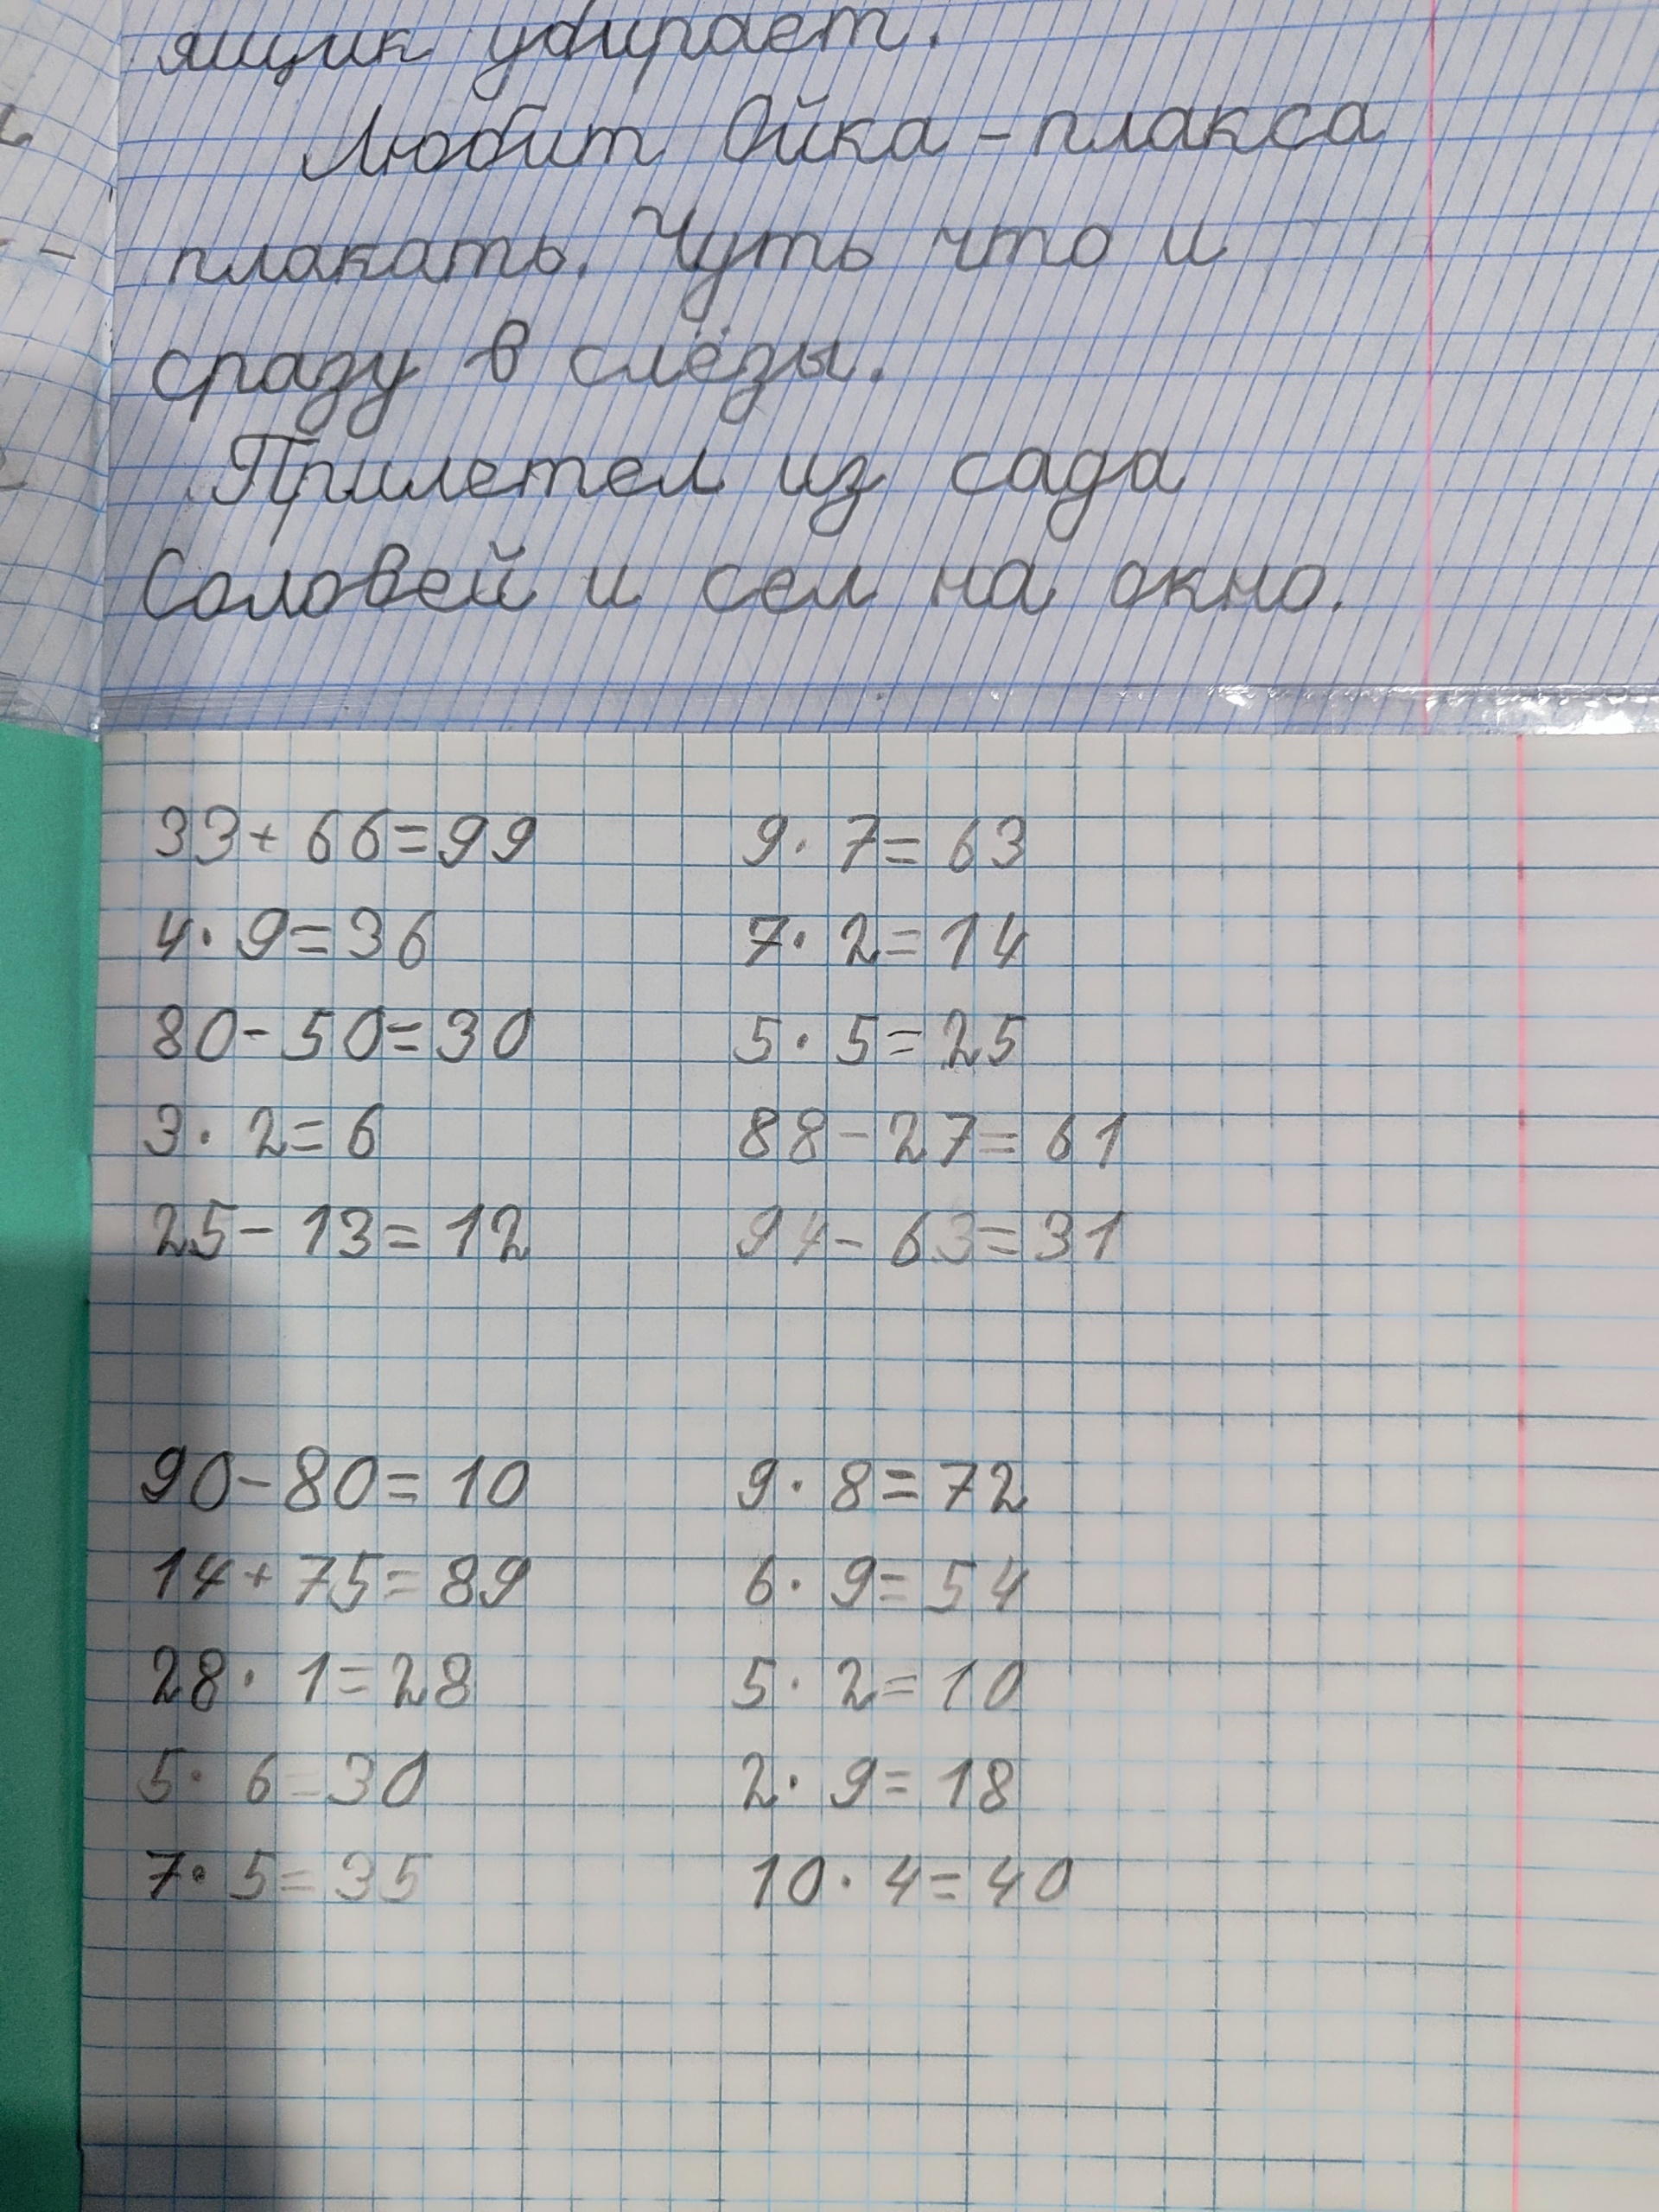 ящик убирает.
Любит Ойка-плакса
плакать. Чуть что и
сразу в слёзы.
Прилетел из сада
Соловей и сел на окно.
33+66=99 9·7=63
4·9=36 7·2=14
80-50=30 5·5=25
3·2=6 88-27=61
25-13=12 94-63=31
90-80=10 9·8=72
14+75=89 6·9=54
28·1=28 5·2=10
5·6=30 2·9=18
7·5=35 10·4=40